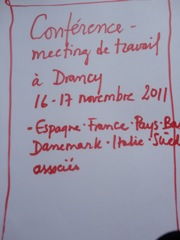 Conférence -
meeting de travail
à Drancy
16-17 novembre 2011
- Espagne · France · Pays-Bas
Danemark · Italie ·
associés